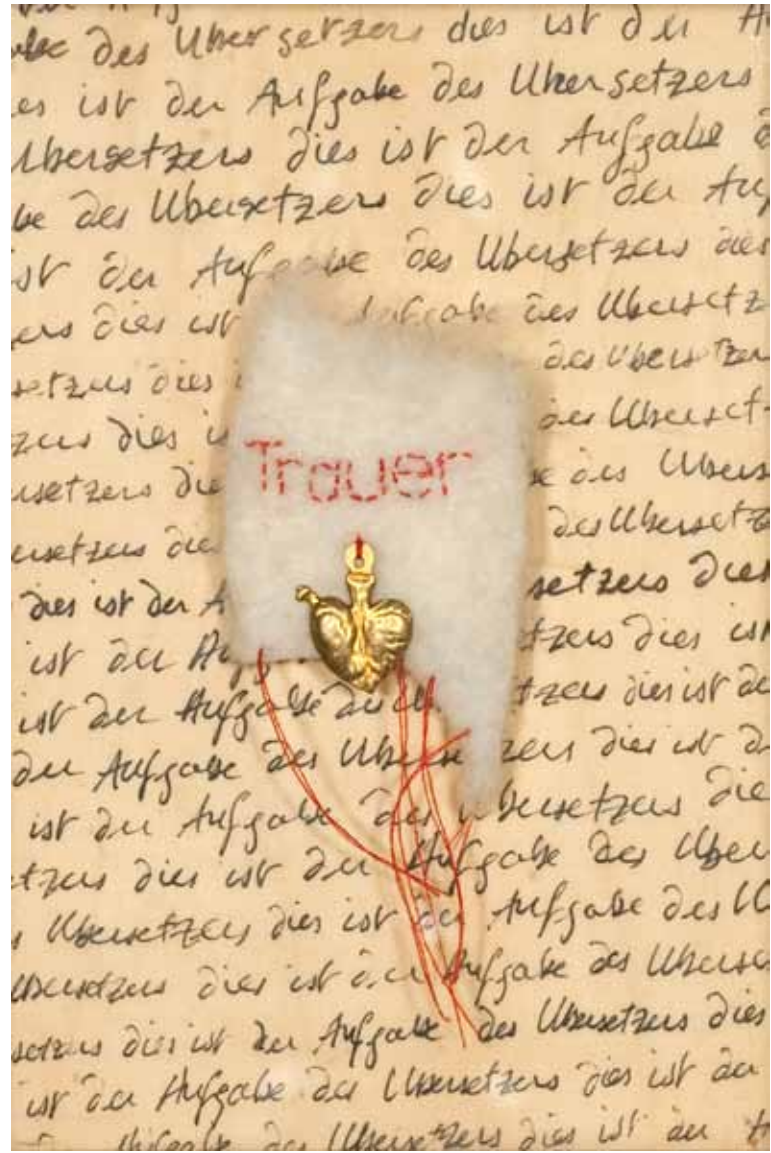 des Ubersetzers dies ist der
es ist der Aufgabe des Ubersetzers
Ubersetzers dies ist der Aufgabe
be des Ubersetzers dies ist der Auf
ist der Aufgabe des Ubersetzers dies
ers dies ist Aufgabe des Ubersetz
setzers dies des Ubersetzer
zers dies is des Uberset
Trauer
usetzers die be des Ubers
ersetzers dies des Ubersetz
dies ist der A setzers dies
ist der Au tzers dies ist
ist der Aufgabe des U tzers dies ist de
der Aufgabe des Uberse zers dies ist d
ist der Aufgabe des Ubersetzers die
etzers dies ist der Aufgabe des Uber
s Ubersetzers dies ist der Aufgabe des U
Ubersetzers dies ist der Aufgabe des Uberse
setzers dies ist der Aufgabe des Ubersetzers dies
ist der Aufgabe des Ubersetzers dies ist der
Aufgabe des Ubersetzers dies ist der